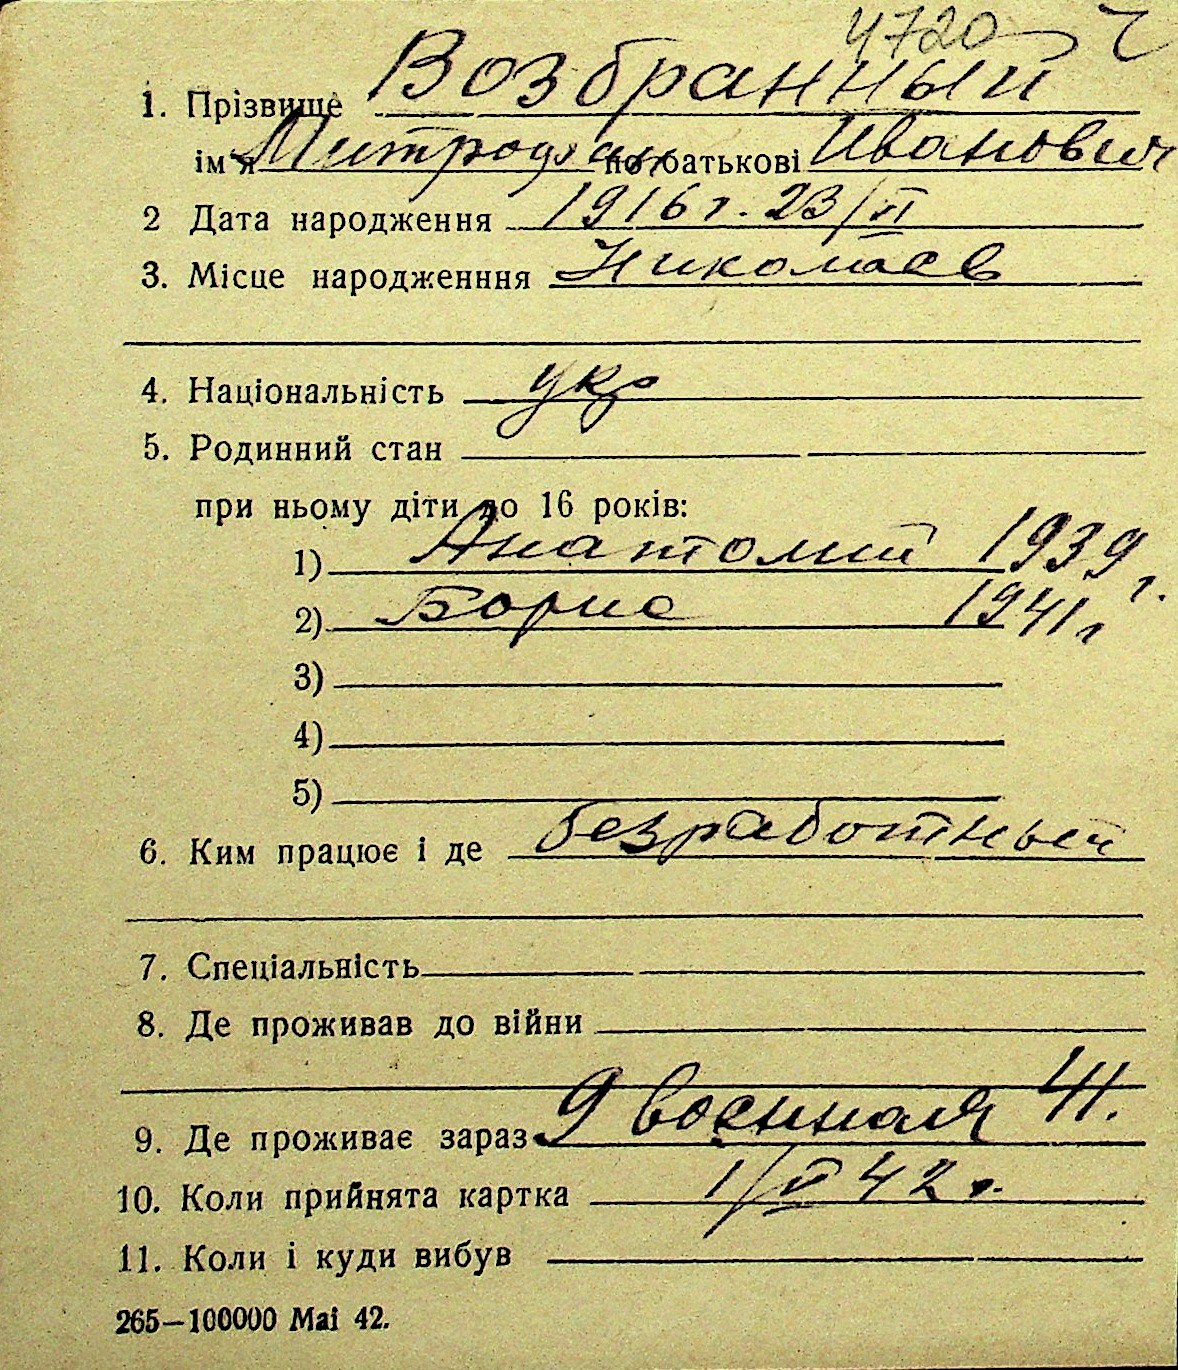 4720
1. Прізвище Возбранный
ім'я Митрофан по батькові Иванович
2 Дата народження 1916 г. 23/II
3. Місце народженння Николаев
4. Національність укр
5. Родинний стан
при ньому діти до 16 років:
1) Анатолий 1939 г.
2) Борис 1941 г
3)
4)
5)
6. Ким працює і де безработный
7. Спеціальність
8. Де проживав до війни
9. Де проживає зараз 9 военная 41.
10. Коли прийнята картка 1/VI 42 г.
11. Коли і куди вибув
265—100000 Mai 42.